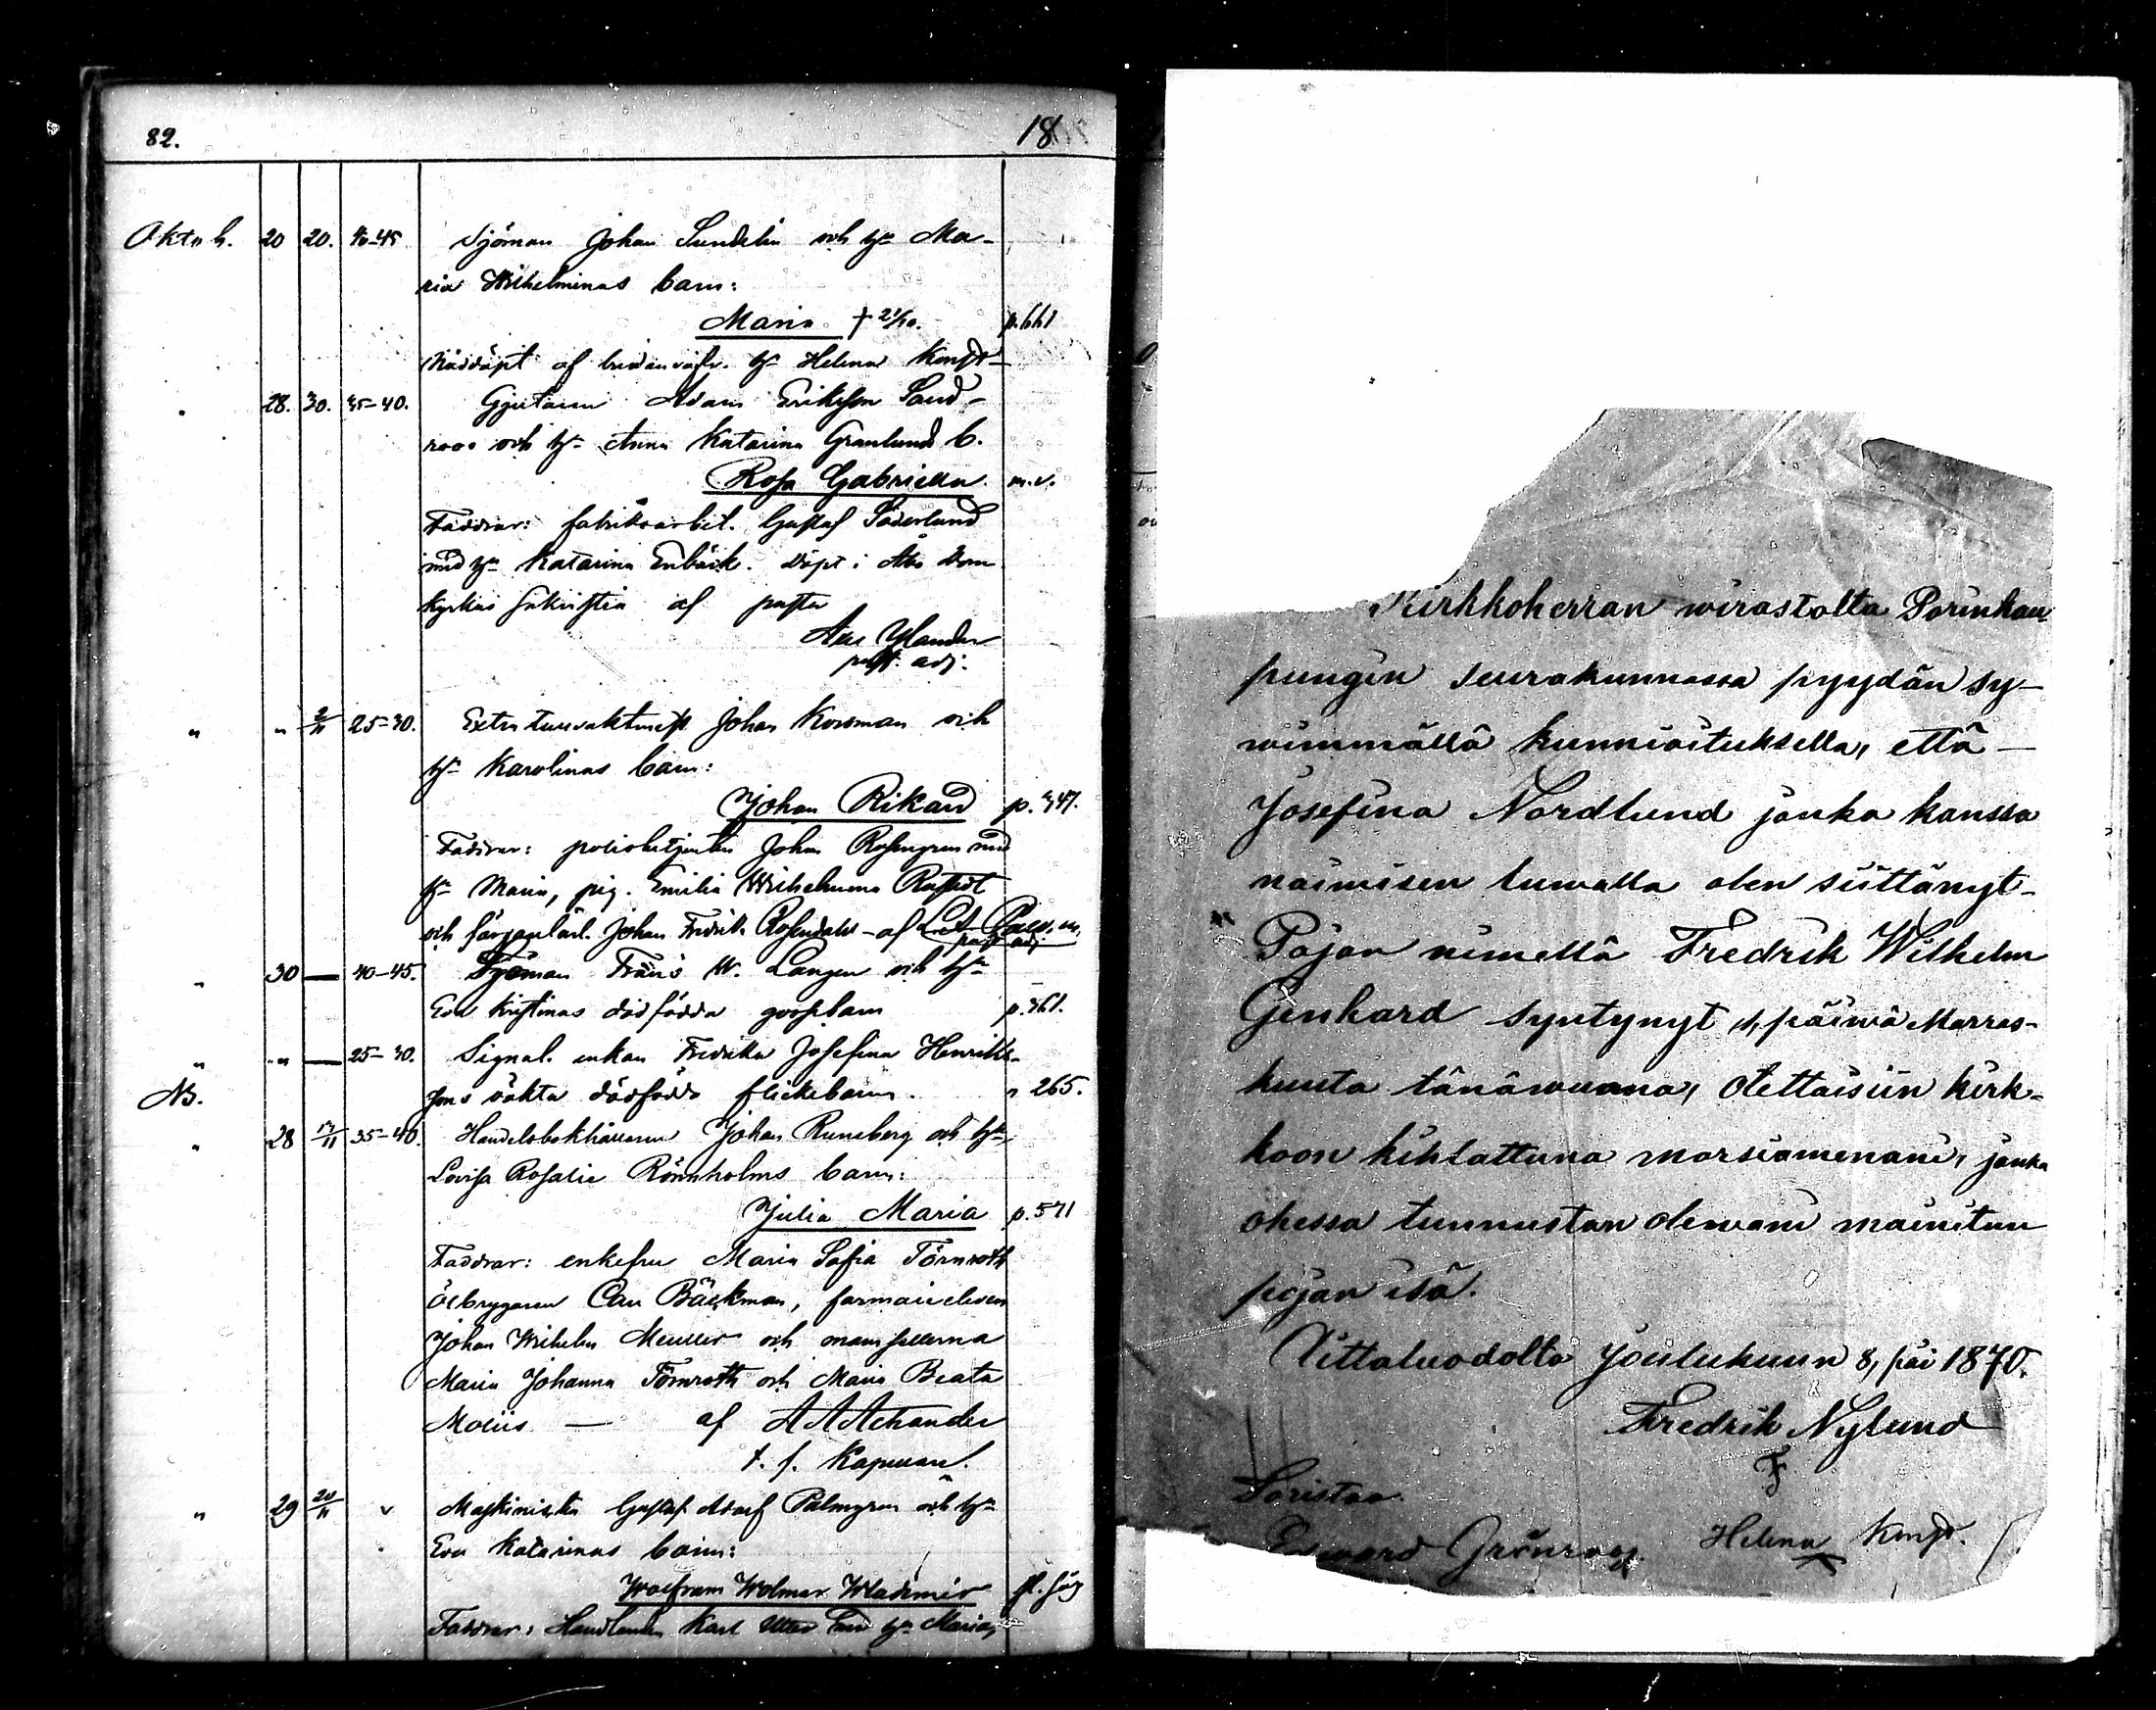 82.
18
Oktob. 20 20. 40-45 Sjöman Johan Sundelin och h:u Ma-
ria Wilhelminas barn:
Maria † 21/10. p. 661
Nöddöpt af h:u Helena Kempt
" 28. 30. 35-40. Gjutaren Adam Eriksson Sand-
roos och h:u Anna Katarina Granlunds b.
Rosa Gabriella. m.v.
Faddrar: fabriksarbet. Gustaf Söderlund
med h:u Katarina Enbäck. Döpt i Åbo dom
kyrkas sakristia af pastor
Ylander
past. adj.
" " 2/11 25-30. Extra tullvaktmest. Johan Korsman och
h:u Karolinas barn:
Johan Rikard p. 347.
Faddrar: polisbetjenten Johan Rosengren med
h:u Maria, pig. Emilia Wilhelmina
och Johan Fredrik af
past. adj.
" 30 — 40-45. Sjöman Frans W. Langen och h:u
Eva Kristinas dödfödda gossebarn p. 361.
" " — 25-30. Signal. enkan Fredrika Josefina Henriks-
sons oäkta dödfödda flickebarn. " 265.
NB.
" 28 17/11 35-40. Handelsbokhållaren Johan Runeberg och h:u
Lovisa Rosalie Rönnholms barn:
Julia Maria p. 571
Faddrar: enkefru Maria Sofia Törnroth
ölbryggaren Carl Bäckman,
Johan Wilhelm Meuller och mamsellerna
Maria Johanna Törnroth och Maria Beata
Moliis — af
t. f. Kapellan.
" 29 20/11 " Maskinisten Gustaf Adolf Palmgren och h:u
Eva Katarinas barn:
Wolfram Wolmar Wladimir
Faddrar: Handlanden Karl h:u Maria,
Kirkkoherran wirastolta Porinkau
pungin seurakunnassa pyydän sy-
wimmällä kunnioituksella, että —
Josefina Nordlund jonka kanssa
naimisen luwalla olen siittänyt
Pojan nimellä Fredrik Wilhelm
Genhard syntynyt päiwä Marras-
kuuta tänäwuona, Otettaisiin kirk-
koon kihlattuna morsiamenani, jonka
ohessa tunnustan olewani mainitun
pojan isä.
Joulukuun 8, päi 1870.
Fredrik Nylund
F
Edward Grönroos. Helena Kempt.